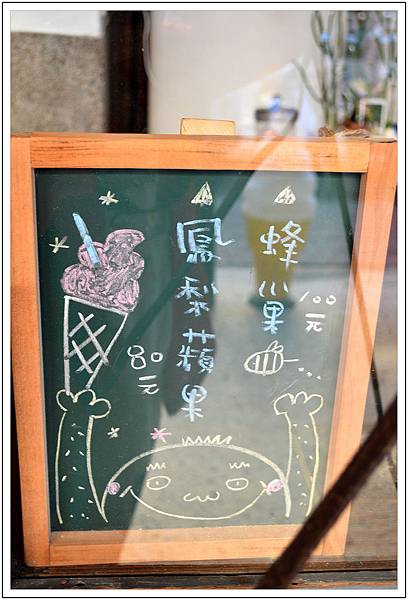 蜂巢
100元
鳳梨蘋果
80元